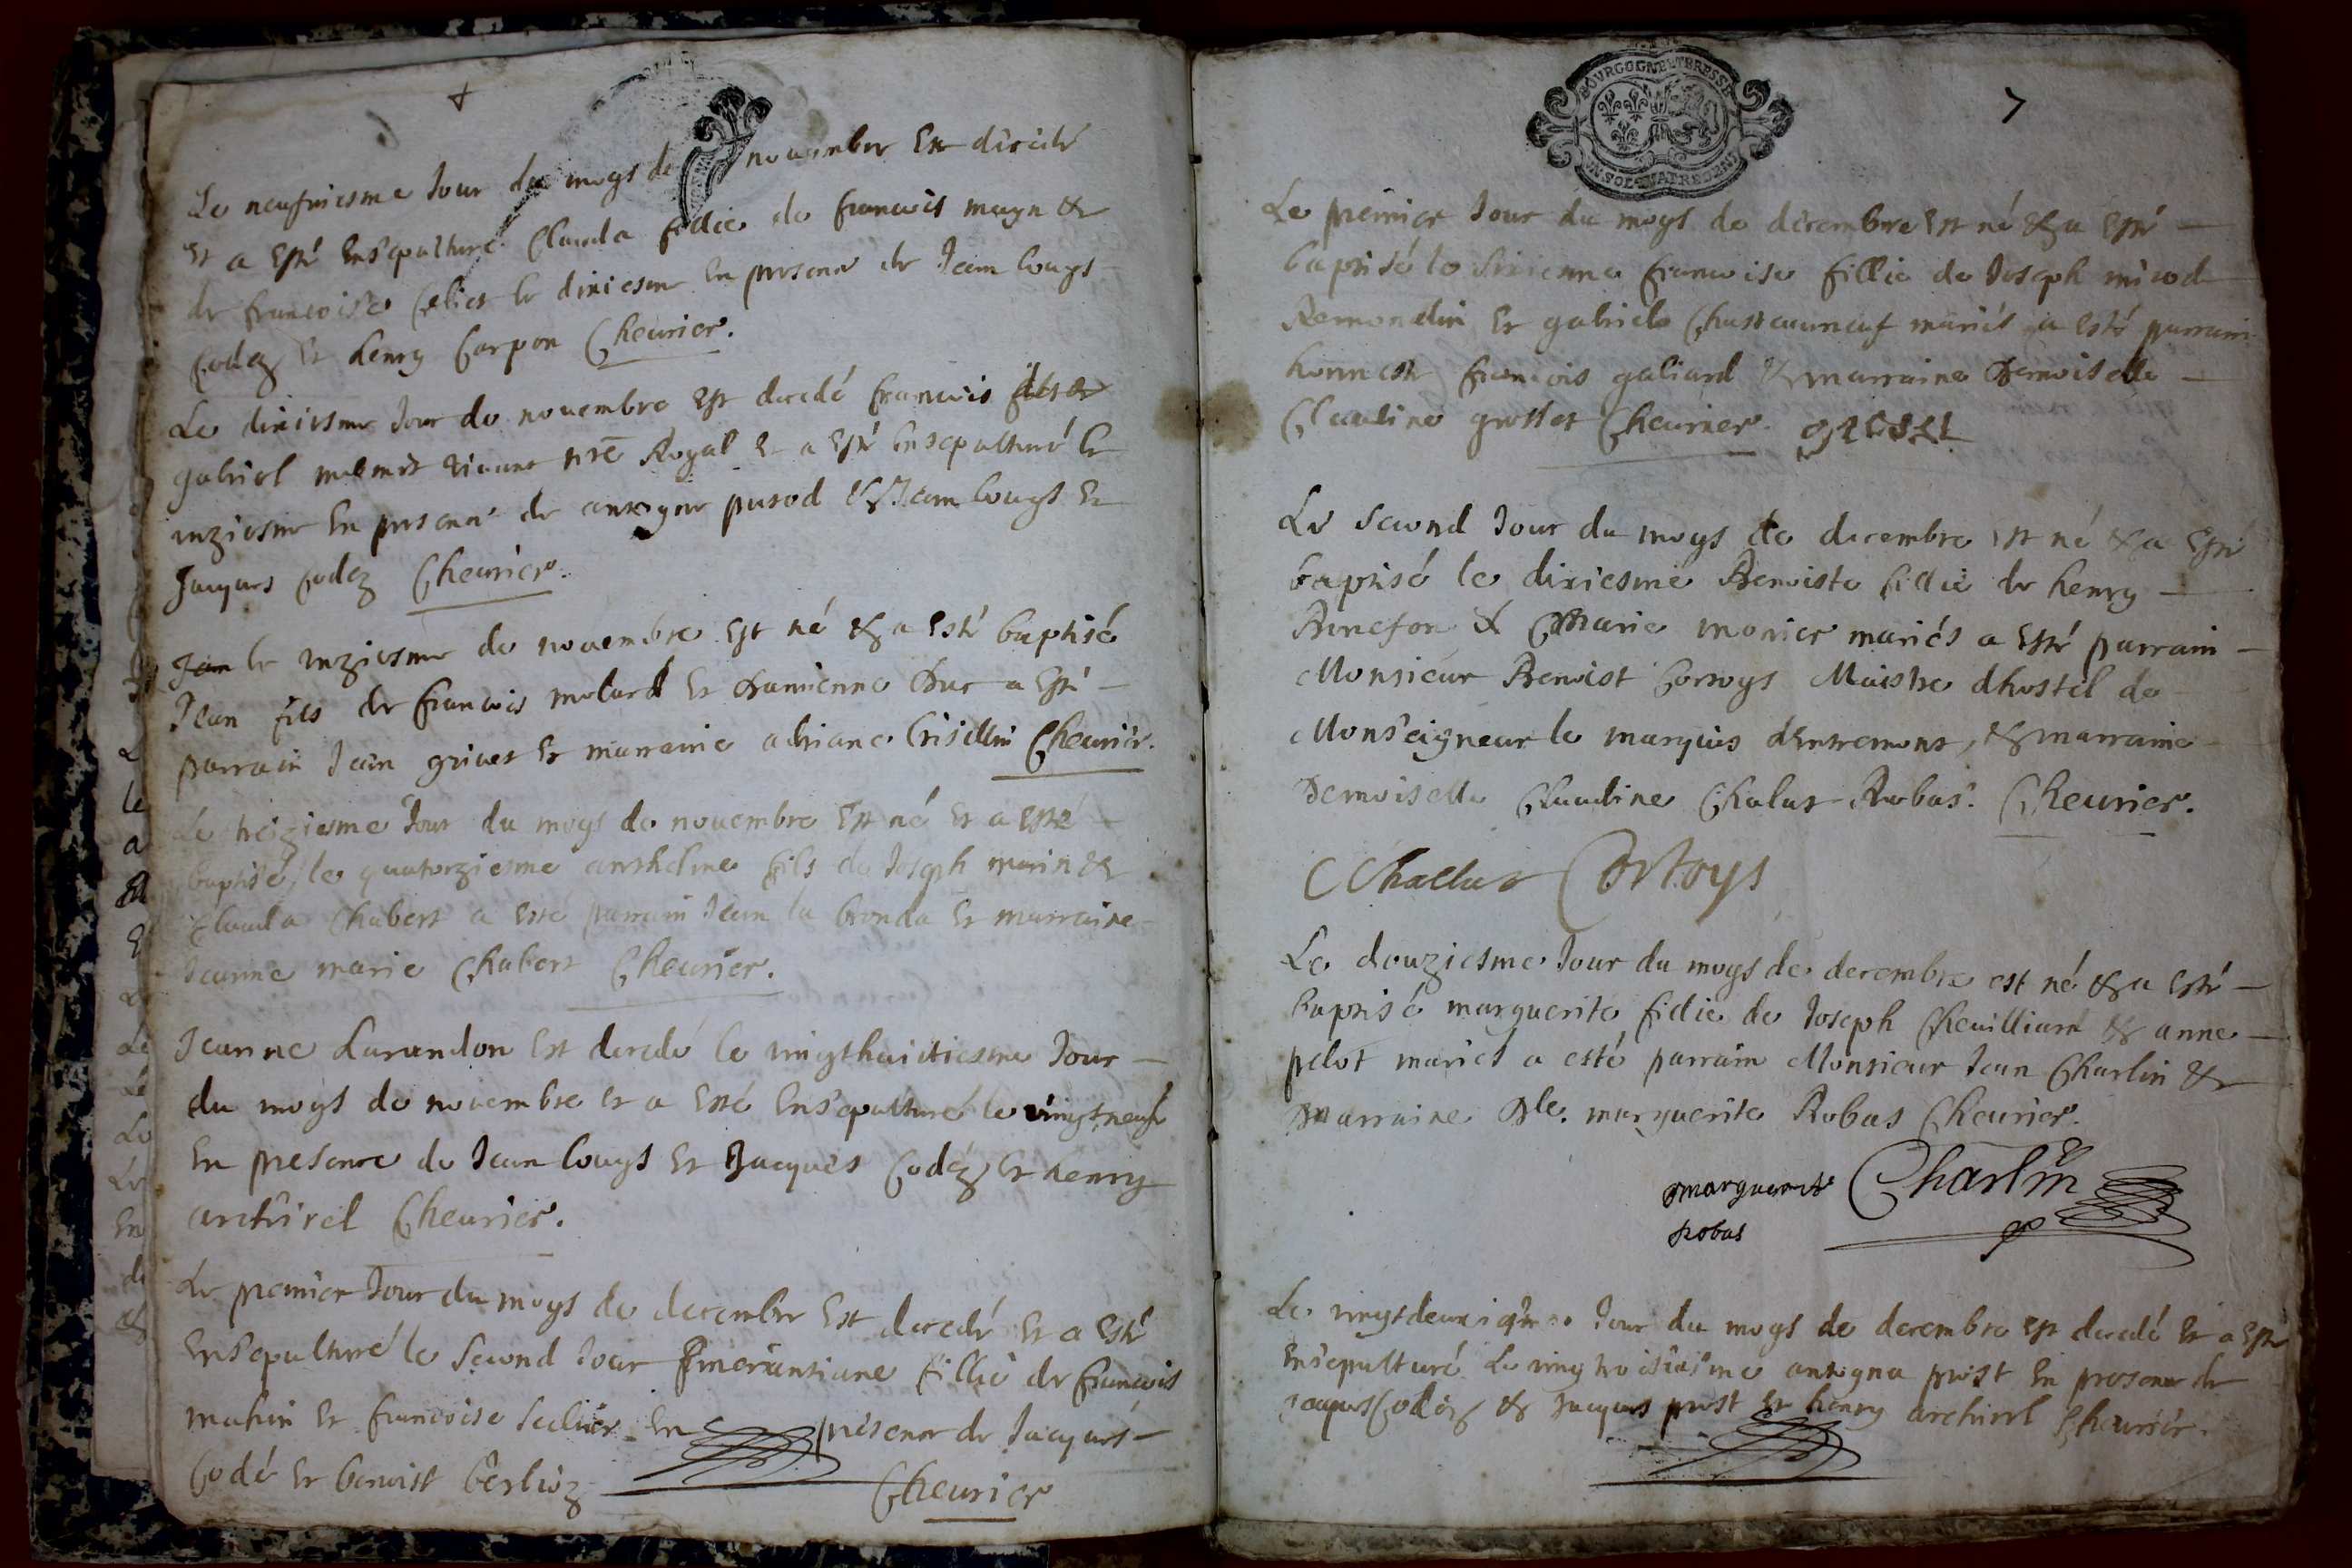 Le neufviesme Jour du moys de novembre Est décédé
Et a Esté Ensepulturé Clauda fillie de francois magn &
de francoise le dixiesme En presence de Jean Louys
Codez Et henry Carpon Cheurier.
Le dixiesme Jour de novembre Est decedé francois
gabriel vivant nre Royal Et a Esté Ensepulturé le
unziesme En presence de antoyne purod & Jean Louys Et
Jacques Codez Cheurier.
Jean le unziesme de novembre Est né & a Esté baptisé
Jean fils de francois molard Et damienne Duc a Esté
parrain Jean grivet Et marraine adriane Crisellin Cheurier.
Le treiziesme Jour du moys de novembre Est né Et a Esté
baptisé le quatorziesme anthelme fils de Joseph marin &
Clauda Chabert a Esté parrain Jean la bronda Et marraine
Jeanne marie Chabert Cheurier.
Jeanne Larandon Est decedé le vingthuictiesme Jour
du moys de novembre Et a Esté Ensepulturé le vingtneufe
En presence de Jean Louys Et Jacques Codéz Et henry
archirel Cheurier.
Le premier Jour du moys de decembre Est decedé Et a Esté
Ensepulturé le second Jour Emerantiane fillie de francois
mahin Et francoise En presence de Jacques
Codé Et benoist berlioz
Cheurier
7
BOURGOGNE ET BRESSE
UN SOL QUATRE DEN
Le premier Jour du moys de decembre Est né & a Esté
baptisé le sixienne francoise fillie de Joseph micod
Remondin Et gabriele Chasteauneuf mariés a Esté parrain
honneste francois galiard & marraine Demoiselle
Claudine grosset Cheurier.
Le second Jour du moys de decembre Est né & a Esté
baptisé le dixiesme Benoiste fillie de henry
Binefon & Marie monier mariés a Esté parrain
Monsieur Benoist Cortoys Maistre dhostel de
Monseigneur le marquis dEntremont, & marraine
Demoiselle Claudine Chalut Robas. Cheurier.
Challut Cortoys
Le douziesme Jour du moys de decembre est né & a Esté
baptisé marguerite fillie de Joseph Cheuilliard & anne
pelot mariés a esté parrain Monsieur Jean Charlin &
marraine Dle. marguerite Robas Cheurier.
marguerite Charlin
Robas
Le vingtdeuxiesme Jour du moys de decembre Est decedé Et a Esté
Ensepulturé Le vingtroisiesme antogna prost En presence de
Jaques Codéz & Jacques prost Et henry archirel Cheurier.